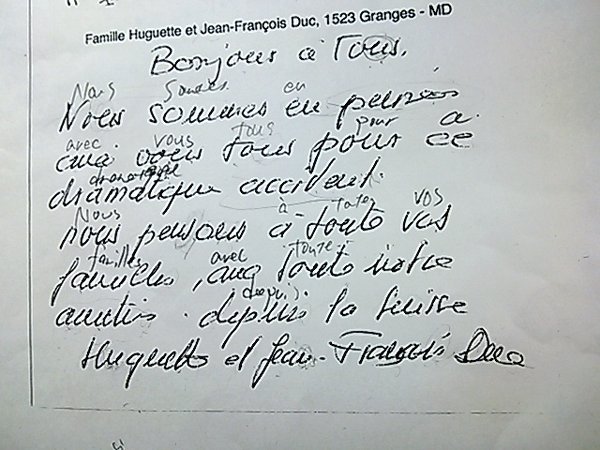 Famille Huguette et Jean-François Duc, 1523 Granges - MD
Bonjour à Tous.
Nous Sommes en
Nous sommes en pensées
avec vous tous pour à
avec vous tous pour ce
dramatique
dramatique accident.
Nous à toute vos
nous pensons à toute vos
familles avec toute
familles, avec toute notre
depuis
amitié. depuis la Suisse
Huguette et Jean-François Duc